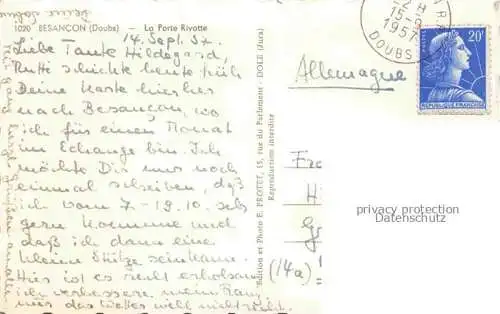 1020 BESANÇON (Doubs) — La Porte Rivotte
14. Sept. 57.
Liebe Tante Hildegard,
Rutti schickte heute früh
Deine Karte hierher
nach Besançon, wo
ich für einen Monat
im Echange bin. Ich
möchte Dir nur noch
einmal schreiben, daß
ich vom 7.-19.10. sehr
gern komme und
daß ich dann eine
kleine Stütze sein kann.
Hier ist es recht erholsam
ich verbessere mein Franz.
nur das Wetter will nicht recht.
Edition et Photo E. PROTET, 15, rue du Parlement - DOLE (Jura)
Reproduction interdite
Allemagne
15-9
1957
DOUBS
POSTES
20F
REPUBLIQUE FRANÇAISE
Fr
H
(14a)
privacy protection
Datenschutz